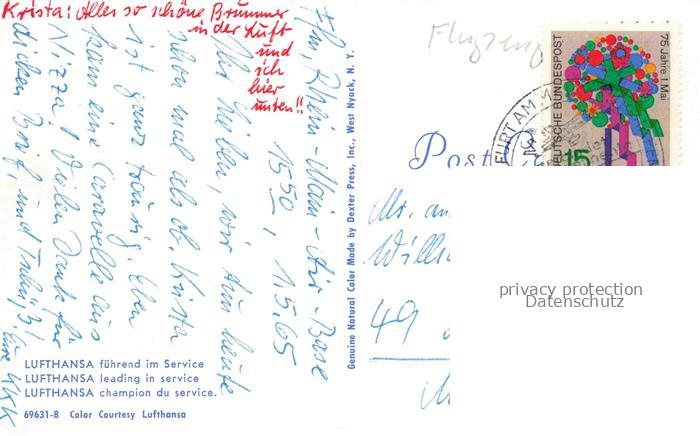 Krista: Alles so schöne Brummer
in der Luft
und
ich
hier
unten!!
Ffm, Rhein-Main-Air-Base
15.50, 1.5.65
Ihr Lieben, wir tun heute
schon mal als ob. Krista
ist ganz traurig. Eben
kam eine Caravelle aus
Nizza! Vielen Dank für
dicken Brief, und
Eure KKK
LUFTHANSA führend im Service
LUFTHANSA leading in service
LUFTHANSA champion du service.
69631-B Color Courtesy Lufthansa
Genuine Natural Color Made by Dexter Press, Inc., West Nyack, N. Y.
Flugzeug
Post
75 Jahre 1. Mai
DEUTSCHE BUNDESPOST
15
FURT AM
Mr. an
49
privacy protection
Datenschutz